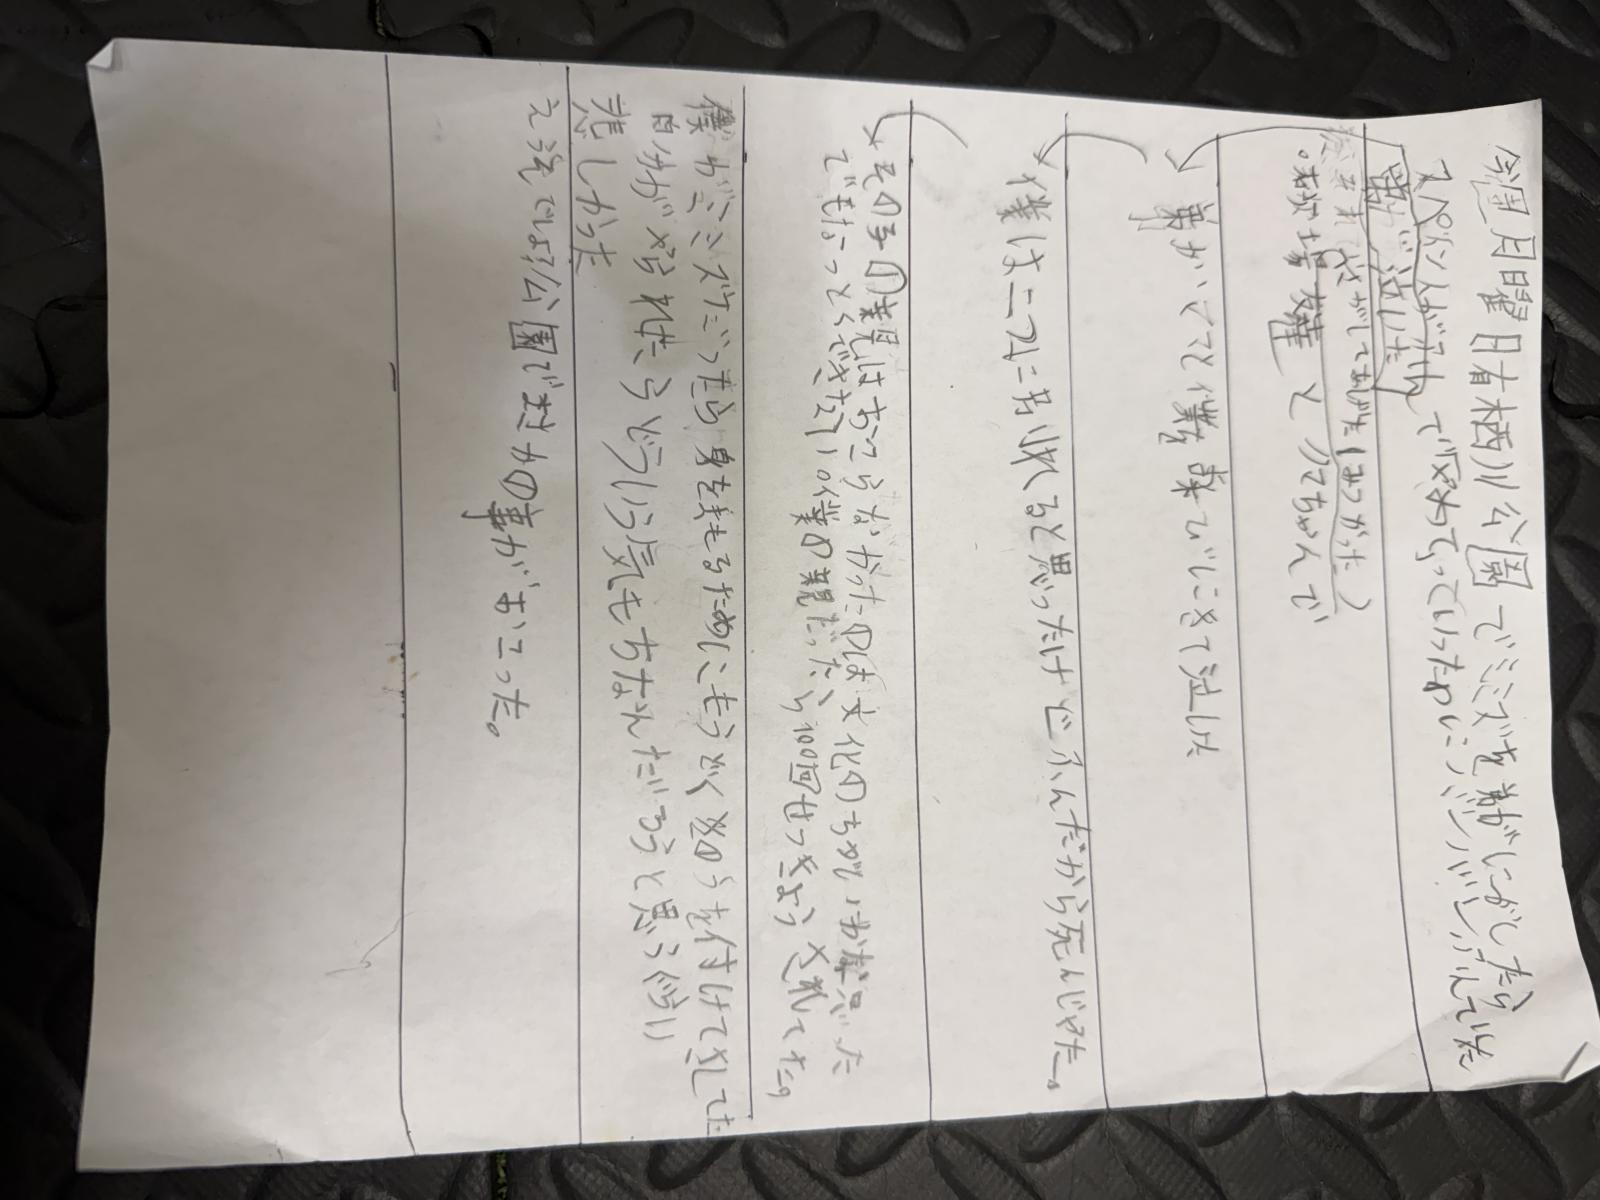 今週月曜日有栖川公園でミミズを弟がにがしたら
スペイン人がふんで攻めてっていったのにバンバンふんでいた
弟が泣いた
がしてあげた(みつかった)
登場友達とママちゃんで
弟がママと僕を呼びにきて泣いた
僕は二つに切れると思ったけどふんだから死んじゃた。
その子の親はおこらなかったのは文化のちがいかな思った
でもなっとくできた!僕の親だったら100回せっきょうされてた。
僕がミミズだったら身を守るためにもうどくのうを付けてさしてた
自分がやられたらどういう気もちなんだいろうと思うぐらい
悲しかった
ええでしょう公園でまさかの事がおこった。